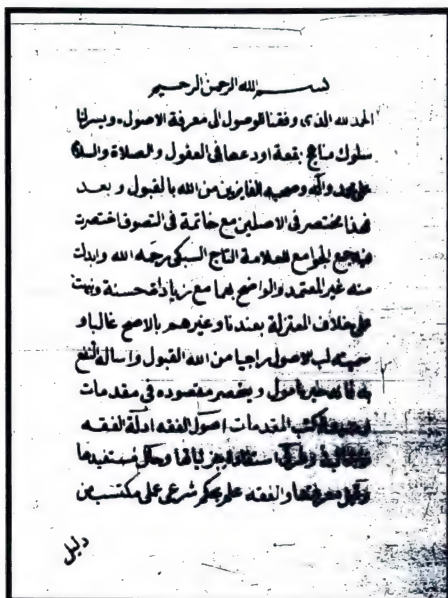 بسم الله الرحمن الرحيم
الحمد لله الذى وفقنا للوصول الى معرفة الاصول ويسر لنا
سلوك مناهج بقوة اودعها فى العقول والصلاة والسلام
على محمد وآله وصحبه الفايزين من الله بالقبول وبعد
فهذا مختصر فى الاصلين مع خاتمة فى التصوف اختصرت
فيه جمع الجوامع للعلامة التاج السبكى رحمه الله وابدلت
منه غير المعتمد والواضح بهما مع زيادات حسنة ونبهت
على خلاف المعتزلة بعندنا وغيرهم بالاصح غالبا و
سميته لب الاصول راجيا من الله القبول واساله النفع
به فانه خير مامول وينحصر مقصوده فى مقدمات
وسبعة كتب المقدمات اصول الفقه ادلة الفقه
الاجمالية وطرق استفادة جزئياتها وحال مستفيدها
وقيل معرفتها والفقه علم بحكم شرعى على مكتسب من
دليل